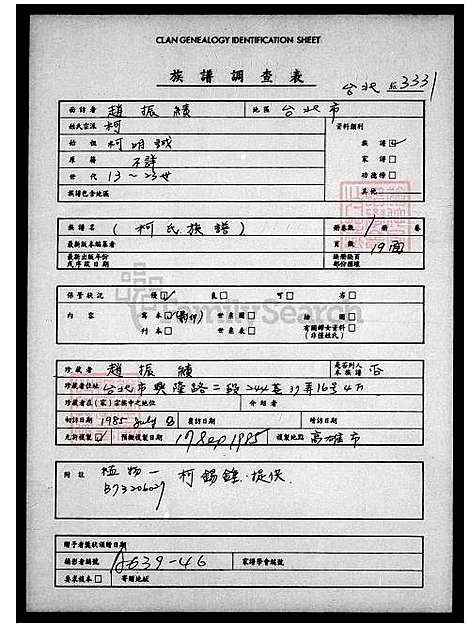 CLAN GENEALOGY IDENTIFICATION SHEET
族譜調查表
台北 3331
面訪者 趙振績 地區 台北市
姓氏宗派 柯 資料類別
始祖 柯明誠 族譜
原籍 不詳 家譜
世代 13~23世 功德榜
族譜包含地區 其他
族譜名 (柯氏族譜) 冊卷數 1 冊 卷
最新版本編著者 頁數 19面
最新出版年份或序跋日期
保管狀況 優 良 可 劣
內容 寫本 (影印) 世系圖 繪圖
刊本 世系表 有關婦女資料(非僅姓氏)
FamilySearch
珍藏者 趙振績 是否列入本族譜 否
珍藏者住址 台北市興隆路二段244巷37弄16号4F
珍藏者在(家)宗族中之地位 介紹者
初訪日期 1985 July 8 複訪日期 續訪日期
允許複製 預擬複製日期 17 Sep 1985 複製地點 高雄市
附註 柯錫鐘.提供
B7320602
贈予者獎狀頒贈日期
攝影者編號 A639-46 家譜學會編號
要求複本 寄贈地址